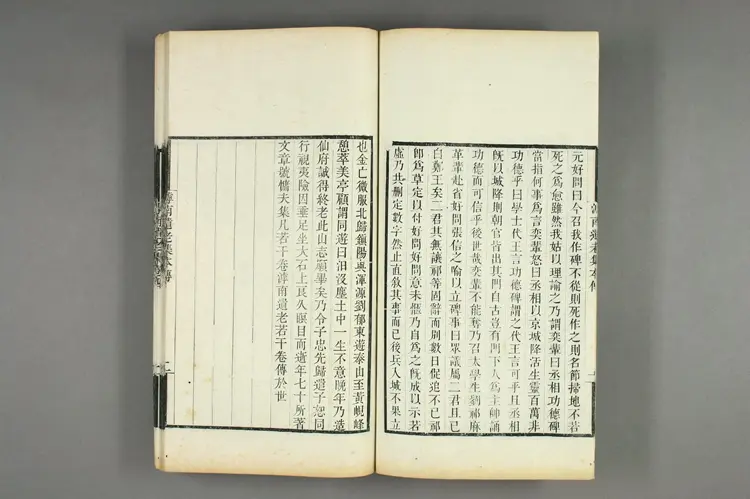 元好問曰今召我作碑不從則死作之則名節掃地不若
死之為愈雖然我姑以理論之乃謂奕輩曰丞相功德碑
當指何事為言奕輩怒曰丞相以京城降活生靈百萬非
功德乎曰學士代王言功德碑謂之代王言可乎且丞相
既以城降則朝官皆出其門自古豈有門下人為主帥誦
功德而可信乎後世哉奕輩不能奪乃召太學生劉祁麻
革輩赴省好問張信之喻以立碑事曰眾議屬二君且已
白鄭王矣二君其無讓祁等固辭而別數日促迫不已祁
即為草定以付好問好問意未愜乃自為之既成以示若
虛乃共刪定數字然止直敘其事而已後兵入城不果立
滹南遺老集本傳
一
也金亡微服北歸鎮陽與渾源劉郁東遊泰山至黃峴峰
憩萃美亭顧謂同遊曰汨沒塵土中一生不意晚年乃造
仙府誠得終老此山志願畢矣乃令子忠先歸遣子恕同
行視夷險因垂足坐大石上良久瞑目而逝年七十所著
文章號慵夫集凡若干卷滹南遺老若干卷傳於世
滹南遺老集本傳
二